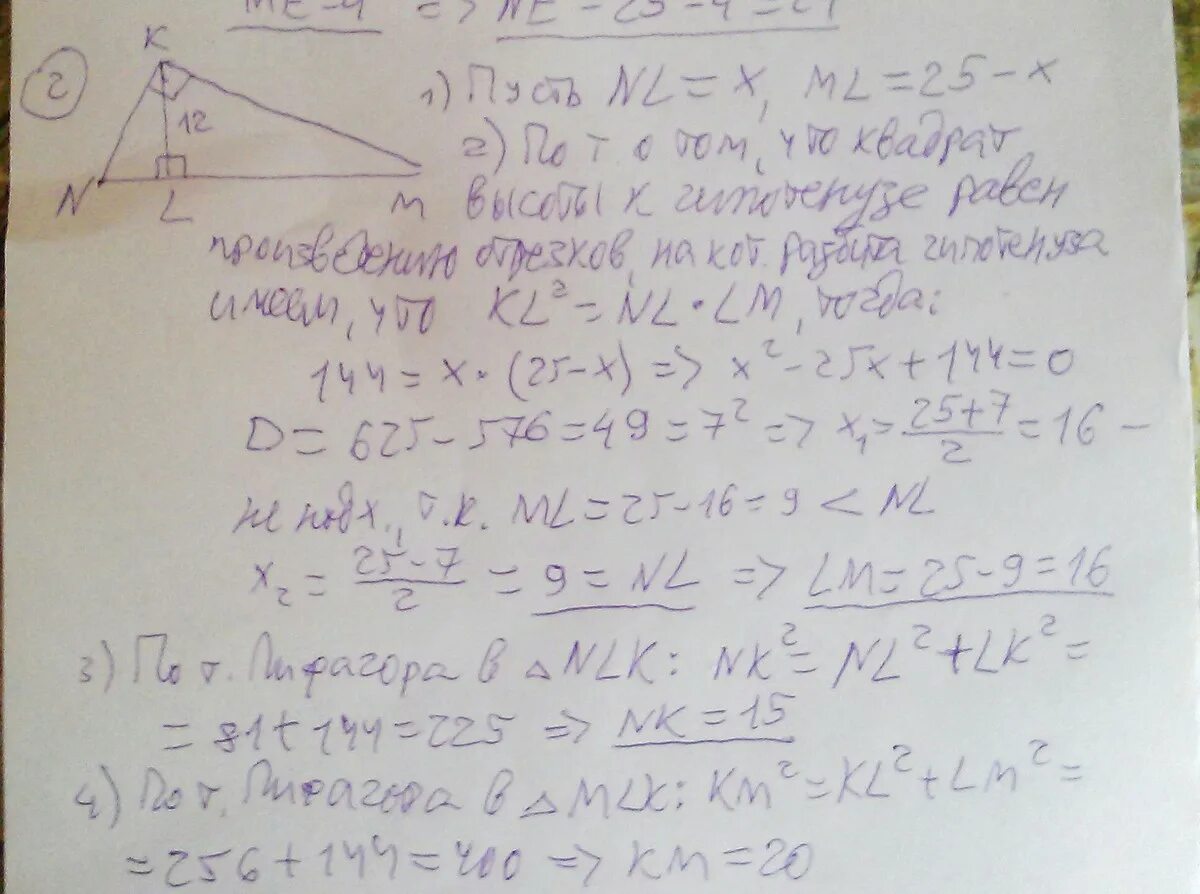 ME = 4 => NE = 25 - 4 = 21
2
K
12
N L M
1) Пусть NL = x, ML = 25 - x
2) По т. о том, что квадрат
высоты к гипотенузе равен
произведению отрезков, на кот. разбита гипотенуза
имеем, что KL² = NL · LM, тогда:
144 = x · (25 - x) => x² - 25x + 144 = 0
D = 625 - 576 = 49 = 7² => x₁ = (25 + 7)/2 = 16 -
не подх., т.к. ML = 25 - 16 = 9 < NL
x₂ = (25 - 7)/2 = 9 = NL => LM = 25 - 9 = 16
3) По т. Пифагора в △NLK: NK² = NL² + LK² =
= 81 + 144 = 225 => NK = 15
4) По т. Пифагора в △MLK: KM² = KL² + LM² =
= 256 + 144 = 400 => KM = 20